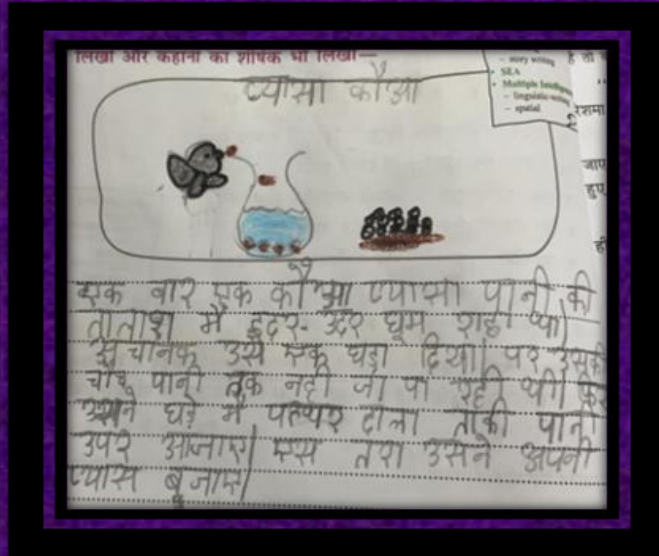 लिखो और कहानी का शीर्षक भी लिखो—
– story writing
• SEA
• Multiple Intelligence
– linguistic-writing
– spatial
है तो
रेशमा
जाए
हुए
ही
प्यासा कौआ
एक बार एक कौआ प्यासा पानी की
तालाश में इदर-उदर घूम राहा था|
अचानक उसे एक घड़ा दिखा| पर उसकी
चोच पानी तक नही जा पा रही थी| फिर
उसने घड़े में पत्थर डाला ताकी पानी
उपर आजाए| एस तरा उसने अपनी
प्यास बुजाए|